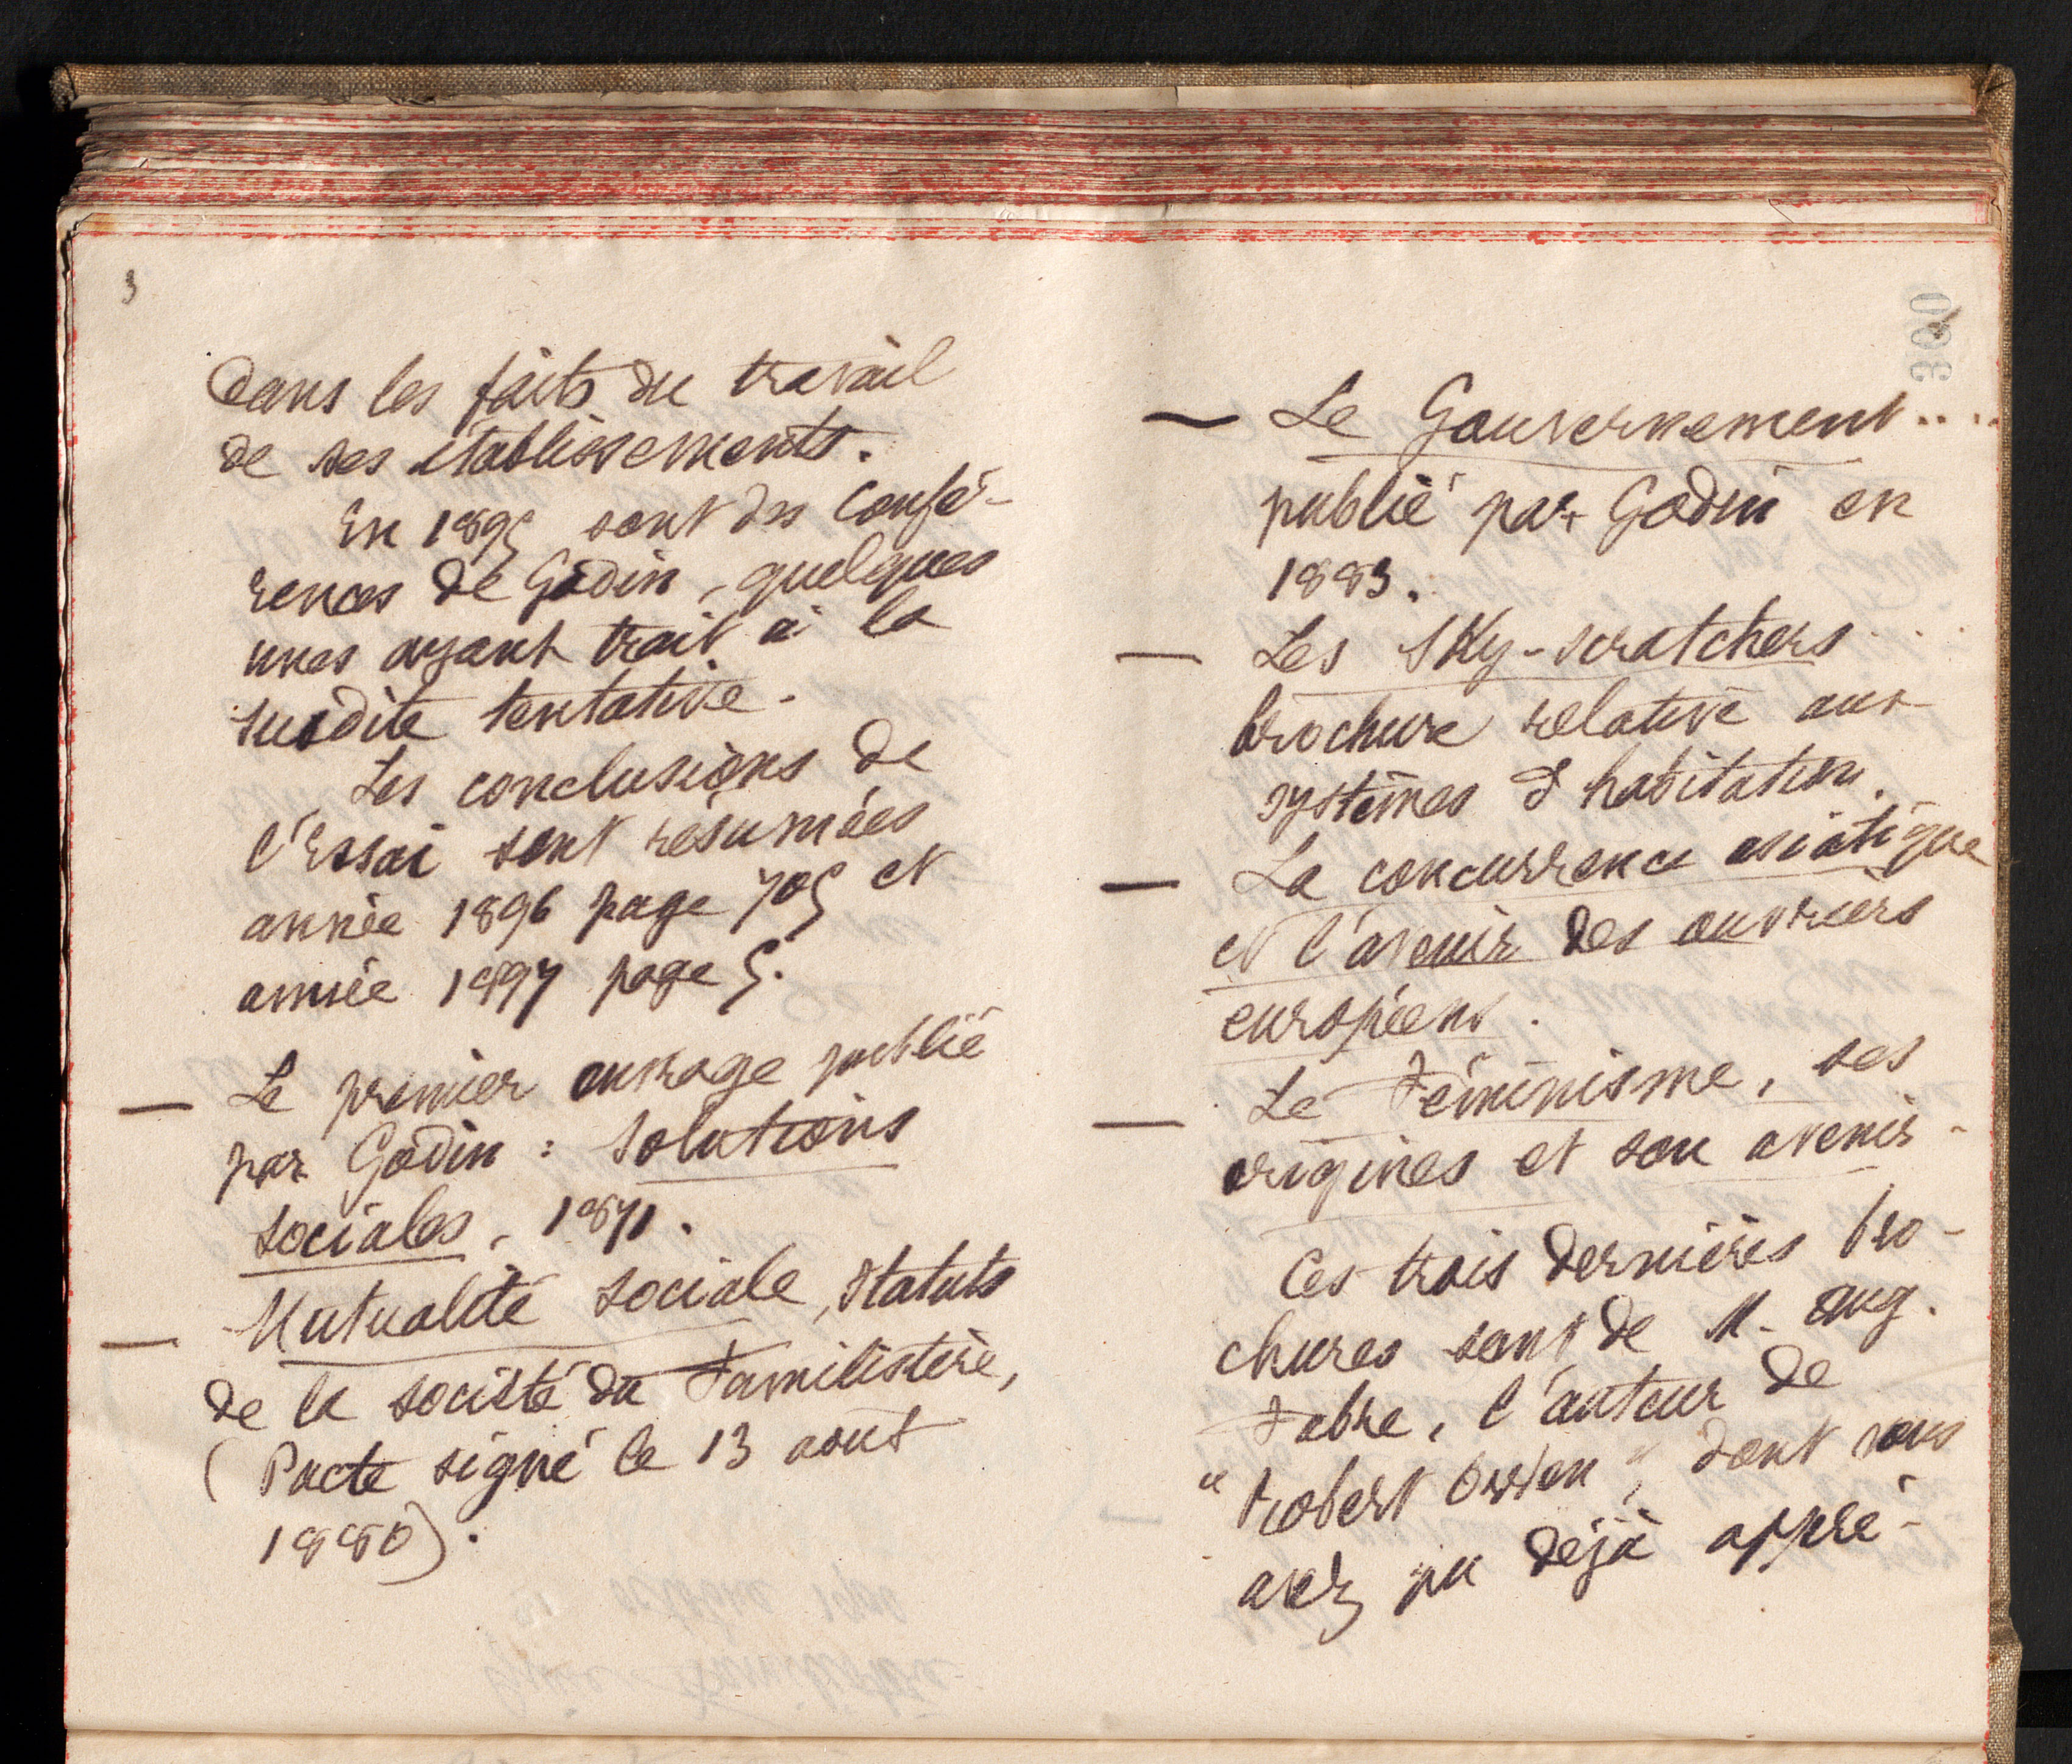 3
dans les faits du travail
de ses établissements.
En 1895 sont des Confé-
rences de Godin, quelques
unes ayant trait à la
susdite tentative.
Les conclusions de
l'Essai sont résumées
année 1896 page 705 et
année 1897 page 5.
— Le premier ouvrage publié
par Godin : Solutions
sociales, 1871.
— Mutualité sociale, Statuts
de la société du Familistère,
(Pacte signé le 13 août
1880).
300
— Le Gouvernement....
publié par Godin en
1883.
— Les Sky-scratchers
brochure relative aux
systèmes d'habitation.
— La concurrence asiatique
et l'avenir des ouvriers
européens.
— Le Féminisme, ses
origines et son avenir.
Ces trois dernières bro-
chures sont de M. Aug.
Fabre, l'auteur de
"Robert Owen", dont vous
avez pu déjà appré-